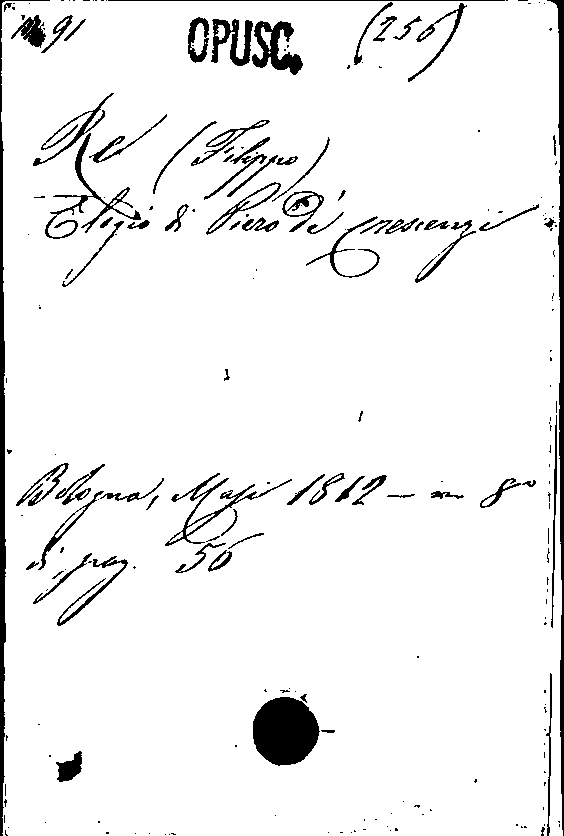 91 OPUSC. (256)
Re (Filippo)
Elogio di Piero de' Crescenzi
Bologna, Masi 1812 — in 8°
di pag. 56